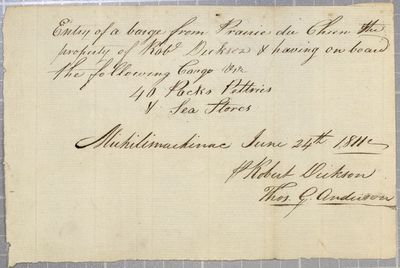 Entry of a barge from Prairie du Chien the
property of Robt Dickson & having on board
the following Cargo Viz
40 Packs Peltries
& Sea Stores
Michilimackinac June 24th 1811
Robert Dickson
Thos. G. Anderson